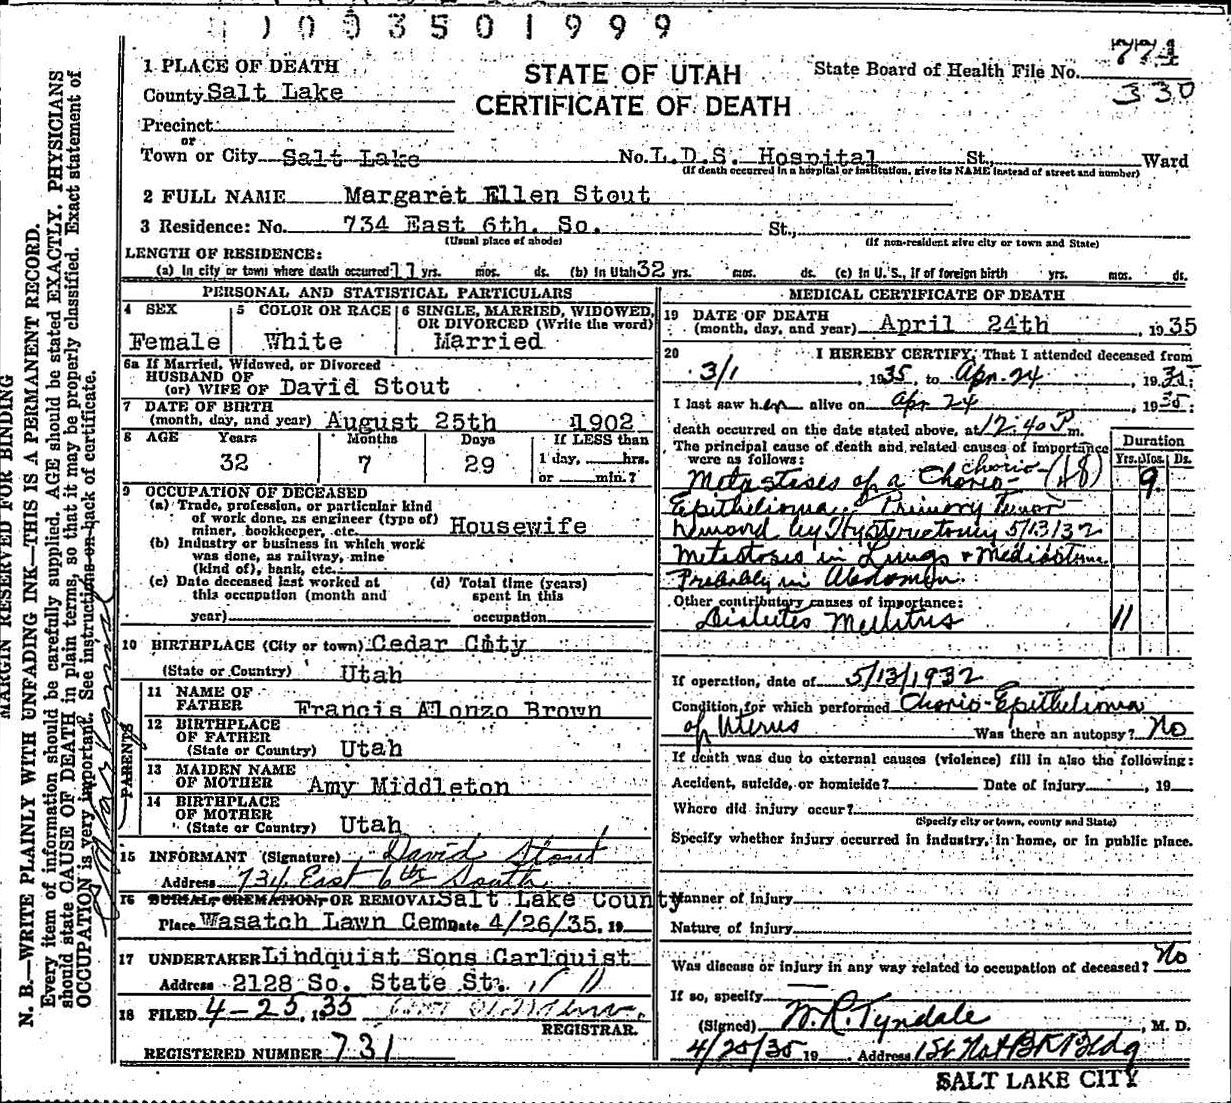 1003501999
774
330
1 PLACE OF DEATH
STATE OF UTAH
CERTIFICATE OF DEATH
State Board of Health File No.
County Salt Lake
Precinct
or
Town or City Salt Lake No. L.D.S. Hospital St., Ward
(If death occurred in a hospital or institution, give its NAME instead of street and number)
2 FULL NAME Margaret Ellen Stout
3 Residence: No. 734 East 6th. So. St.,
(Usual place of abode) (If non-resident give city or town and State)
LENGTH OF RESIDENCE:
(a) In city or town where death occurred 11 yrs. mos. ds. (b) In Utah 32 yrs. mos. ds. (c) In U. S., if of foreign birth yrs. mos. ds.
PERSONAL AND STATISTICAL PARTICULARS
4 SEX
Female
5 COLOR OR RACE
White
6 SINGLE, MARRIED, WIDOWED,
OR DIVORCED (Write the word)
Married
6a If Married, Widowed, or Divorced
HUSBAND OF
(or) WIFE OF David Stout
7 DATE OF BIRTH
(month, day, and year) August 25th 1902
8 AGE Years Months Days If LESS than
32 7 29 1 day, hrs.
or min.?
9 OCCUPATION OF DECEASED
(a) Trade, profession, or particular kind
of work done, as engineer (type of)
miner, bookkeeper, etc. Housewife
(b) Industry or business in which work
was done, as railway, mine
(kind of), bank, etc.
(c) Date deceased last worked at
this occupation (month and
year)
(d) Total time (years)
spent in this
occupation
10 BIRTHPLACE (City or town) Cedar City
(State or Country) Utah
PARENTS
11 NAME OF
FATHER Francis Alonzo Brown
12 BIRTHPLACE
OF FATHER
(State or Country) Utah
13 MAIDEN NAME
OF MOTHER Amy Middleton
14 BIRTHPLACE
OF MOTHER
(State or Country) Utah
15 INFORMANT (Signature) David Stout
Address 734 East 6th South
16 BURIAL CREMATION OR REMOVAL Salt Lake County
Place Wasatch Lawn Cem Date 4/26/35, 19
17 UNDERTAKER Lindquist Sons Carlquist
Address 2128 So. State St.
18 FILED 4-25, 1935
REGISTRAR.
REGISTERED NUMBER 731
MEDICAL CERTIFICATE OF DEATH
19 DATE OF DEATH
(month, day, and year) April 24th, 1935
20 I HEREBY CERTIFY, That I attended deceased from
3/1, 1935, to Apr. 24, 1935;
I last saw her alive on Apr 24, 1935;
death occurred on the date stated above, at 12:40 P.m.
The principal cause of death and related causes of importance
were as follows:
Duration
Yrs. Mos. Ds.
chorio- (48)
Metastases of a Chorio- 9
Epithelioma. Primary Tumor
removed by Hysterectomy 5/13/32
Metastases in Lungs &
Probably in Abdomen.
Other contributory causes of importance:
Diabetes Mellitus 11
If operation, date of 5/13/1932
Condition for which performed Chorio-Epithelioma
of Uterus Was there an autopsy? No
If death was due to external causes (violence) fill in also the following:
Accident, suicide, or homicide? Date of Injury, 19
Where did injury occur?
(Specify city or town, county and State)
Specify whether injury occurred in industry, in home, or in public place.
Manner of Injury
Nature of Injury
Was disease or injury in any way related to occupation of deceased? No
If so, specify
(Signed) W. R. Tyndale, M. D.
4/25/35 19 Address 1st Nat BK Bldg
SALT LAKE CITY
MARGIN RESERVED FOR BINDING
N. B.—WRITE PLAINLY WITH UNFADING INK—THIS IS A PERMANENT RECORD.
Every item of information should be carefully supplied. AGE should be stated EXACTLY. PHYSICIANS
should state CAUSE OF DEATH in plain terms, so that it may be properly classified. Exact statement of
OCCUPATION is very important. See instructions on back of certificate.